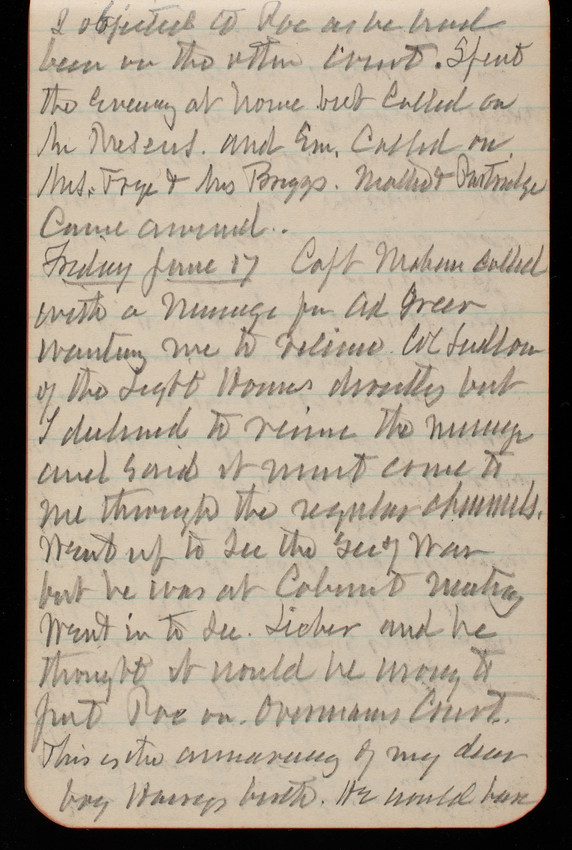 I objected to Roe as he had
been on the other Court. Spent
the Evening at home but Called on
the Presid. and Em. Called on
Mrs. Frye & Mrs Briggs. & Partridge
Came around..
Friday June 17 Capt Mahan called
with a Message fm Ad Greer
wanting me to relieve Col Ludlow
of the Light Houses directly but
I declined to receive the Message
and said it must come to
me through the regular channels.
Went up to see the Secy War
but he was at Cabinet Meeting
Went in to see. Lieber and he
thought it would be wrong to
put Roe on. Overmans Court.
This is the anniversary of my dear
boy Harrys birth. He would have